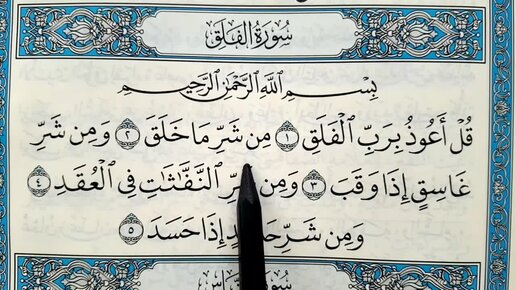 سُورَةُ الفَلَقِ
بِسْمِ ٱللَّهِ ٱلرَّحْمَٰنِ ٱلرَّحِيمِ
قُلْ أَعُوذُ بِرَبِّ ٱلْفَلَقِ ١ مِن شَرِّ مَا خَلَقَ ٢ وَمِن شَرِّ
غَاسِقٍ إِذَا وَقَبَ ٣ وَمِن ٱلنَّفَّٰثَٰتِ فِي ٱلْعُقَدِ ٤
وَمِن شَرِّ إِذَا حَسَدَ ٥